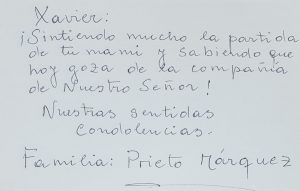 Xavier:
¡Sintiendo mucho la partida
de tú mami y sabiendo que
hoy goza de la compañía
de Nuestro Señor!
Nuestras sentidas
Condolencias.
Familia: Prieto Márquez